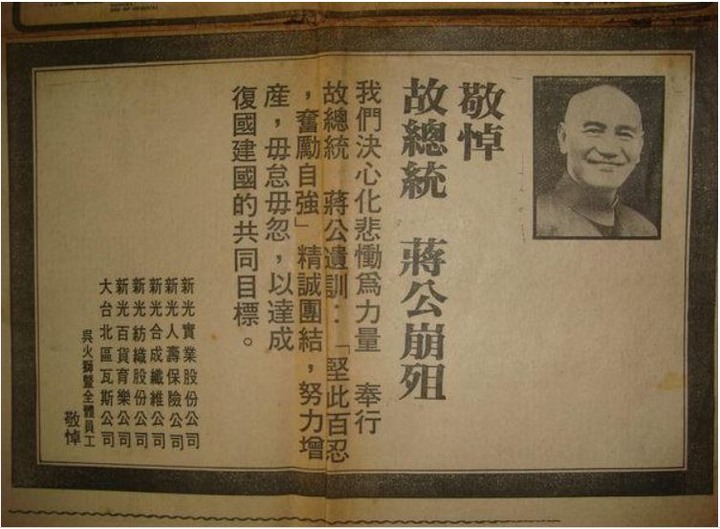 敬悼
故總統　蔣公崩殂
我們決心化悲慟為力量　奉行
故總統　蔣公遺訓：「堅此百忍
，奮勵自強」精誠團結，努力增
產，毋怠毋忽，以達成
復國建國的共同目標。
新光實業股份公司
新光人壽保險公司
新光合成纖維公司
新光紡織股份公司
新光百貨育樂公司
大台北區瓦斯公司
吳火獅暨全體員工
敬悼